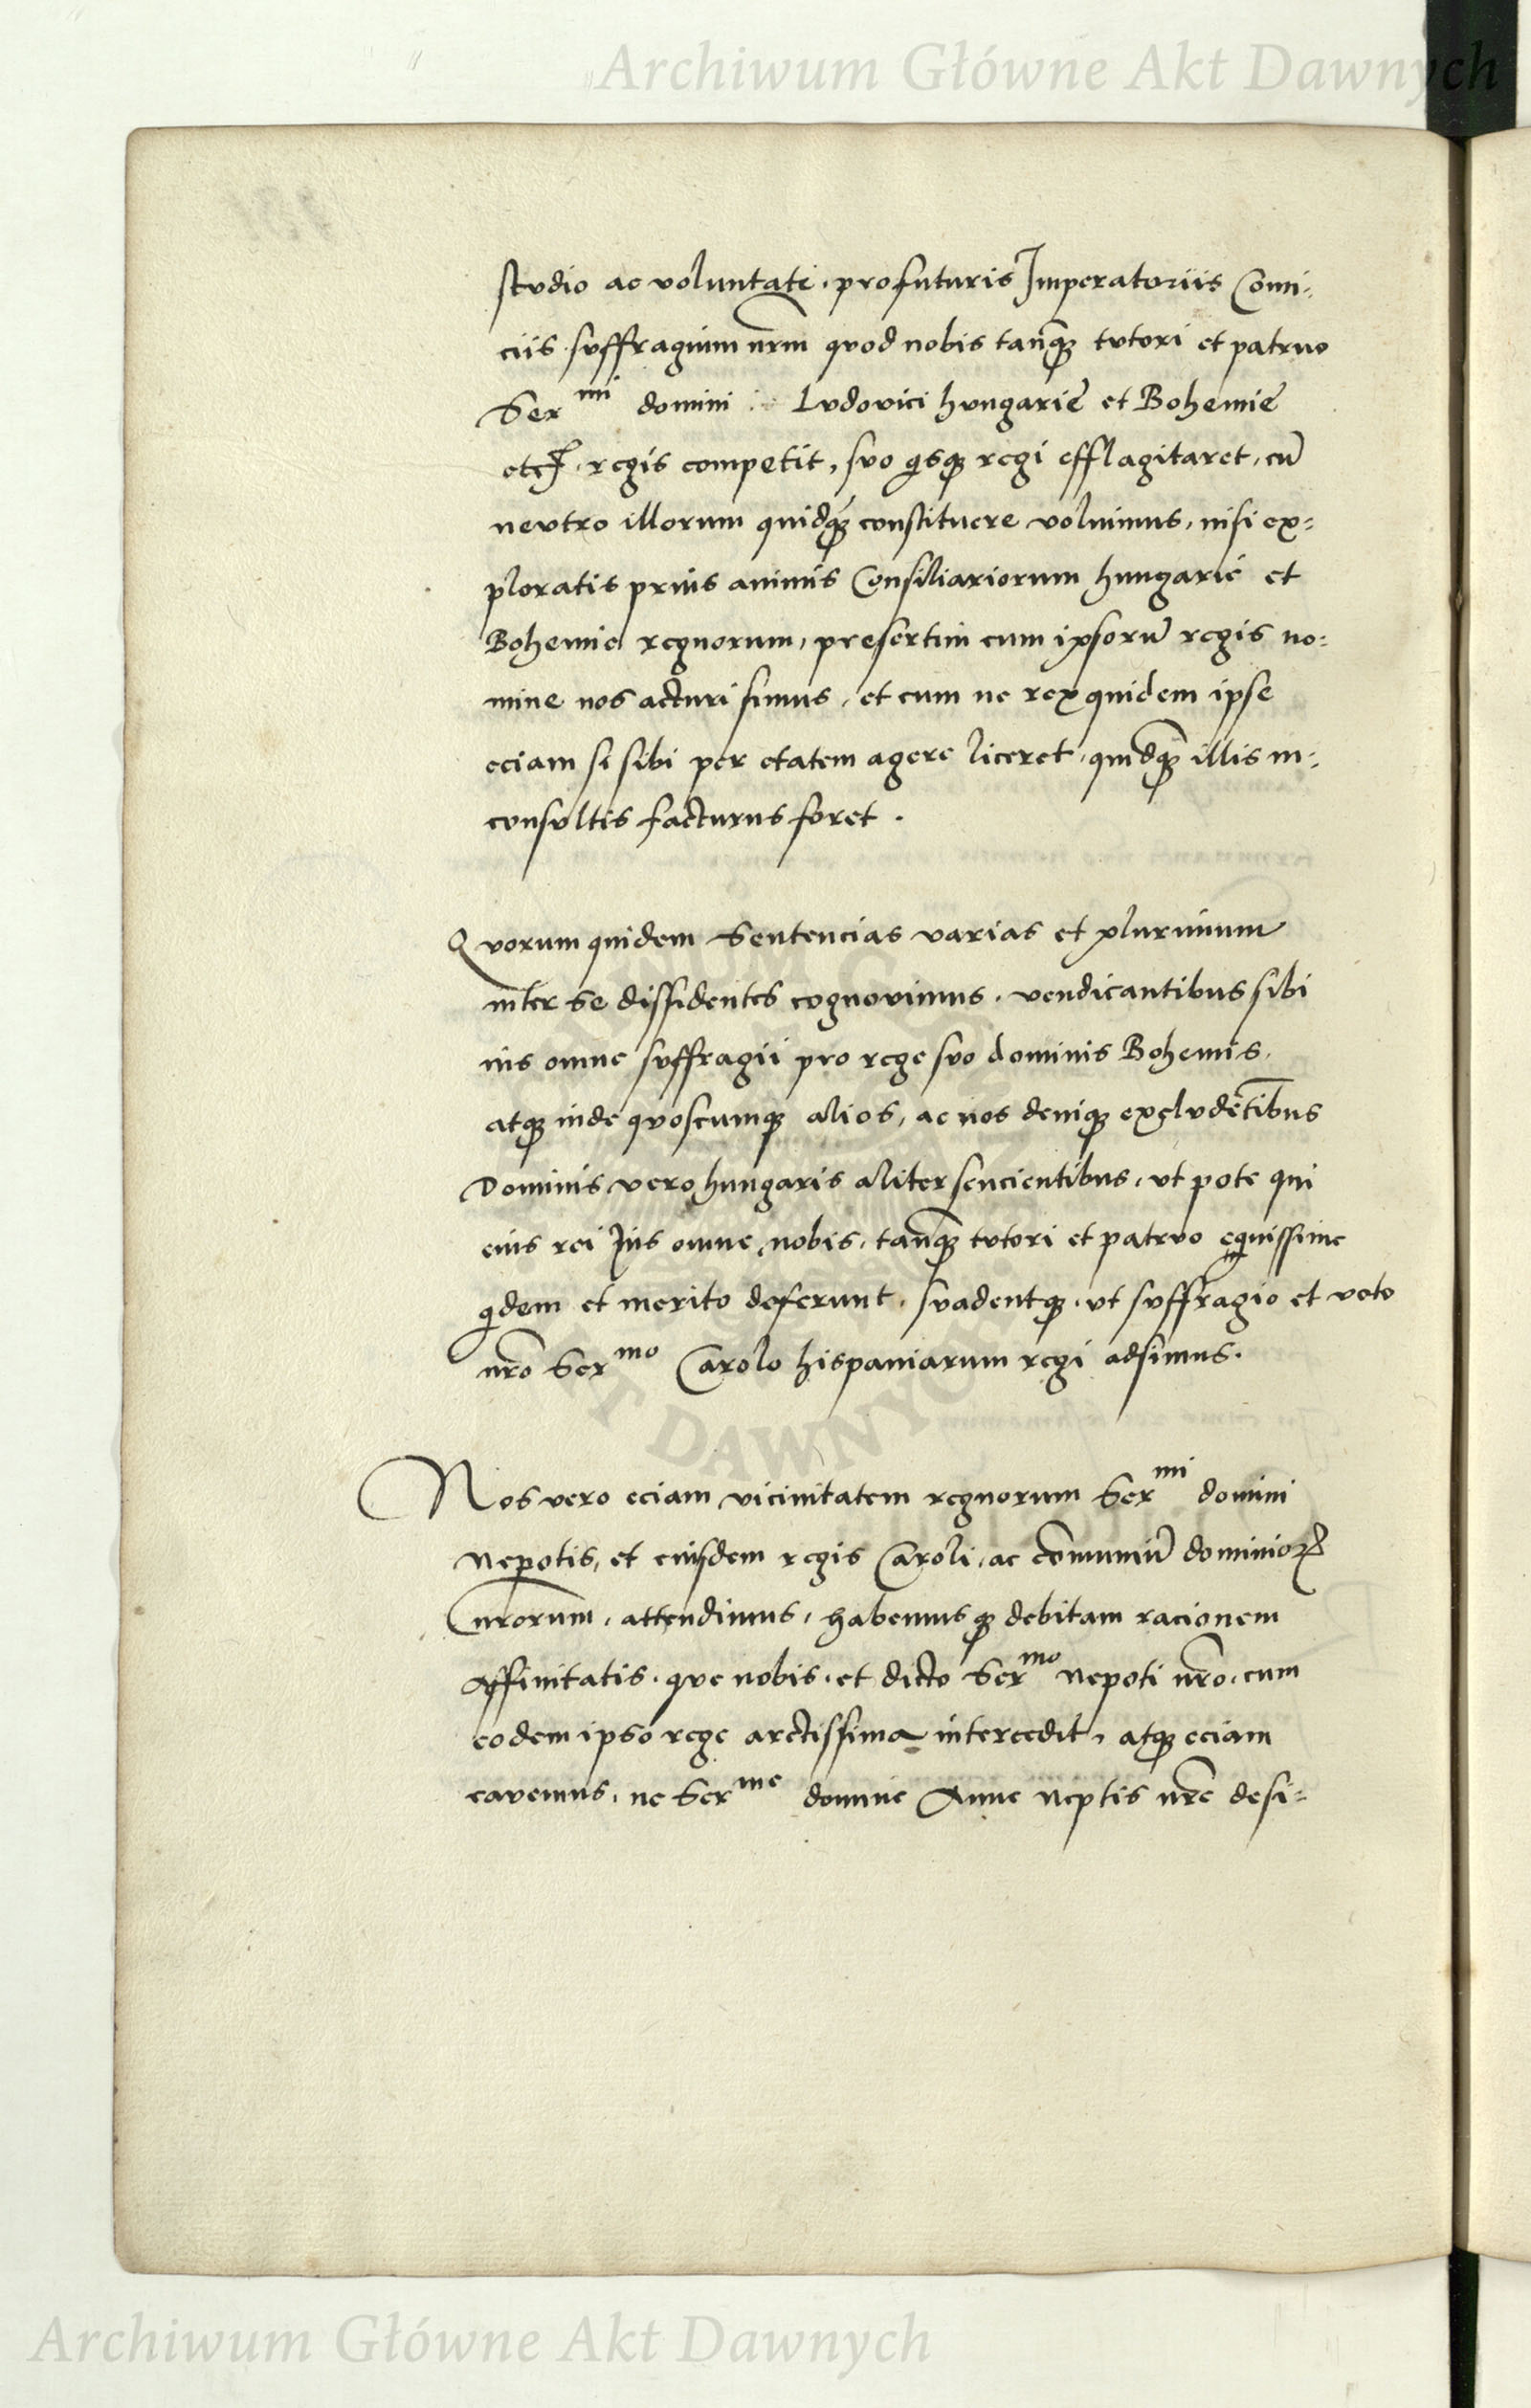 Archiwum Główne Akt Dawnych
stvdio ac voluntate. pro futuris Imperatoriis Comi-
ciis. svffragium nr̄m qvod nobis tanq̄ tvtori et patruo
Serᵐⁱ domini Lvdovici hvngariē et Bohemiē
etc̄. regis competit, svo q̇sq̨ regi efflagitaret, cū
nevtro illorum quidq̄ constitvere volvimus, nisi ex-
ploratis prius animis Consiliariorum hungarię et
Bohemie regnorum, presertim cum ipsorū regis no-
mine nos acturi simus, et cum ne rex quidem ipse
eciam si sibi per etatem agere liceret, quidq̄ illis in-
consvltis facturus foret.
Qvorum quidem Sentencias varias et plurimum
inter Se dissidentes cognovimus. vendicantibus sibi
ius omne svffragii pro rege svo dominis Bohemis.
atq̨ inde qvoscumq̨ alios, ac nos deniq̨ exclvdētibus
Dominis vero hungaris aliter sencientibus, vt pote qui
eius rei Jus omne nobis, tanq̄ tvtori et patrvo equissime
q̇dem et merito deferunt, svadentq̨. vt svffragio et voto
nr̄o Serᵐᵒ Carolo hispaniarum regi adsimus.
Nos vero eciam vicinitatem regnorum Serᵐⁱ domini
Nepotis, et eiusdem regis Caroli, ac cōmuniū dominioꝝ
nr̄orum, attendimus, habemusq̨ debitam racionem
Affinitatis. que nobis. et dicto Serᵐᵒ Nepoti nr̄o, cum
eodem ipso rege arctissima intercedit, atq̨ eciam
cavemus, ne Serᵐᵉ domine Anne Neptis nr̄e desi-
Archiwum Główne Akt Dawnych